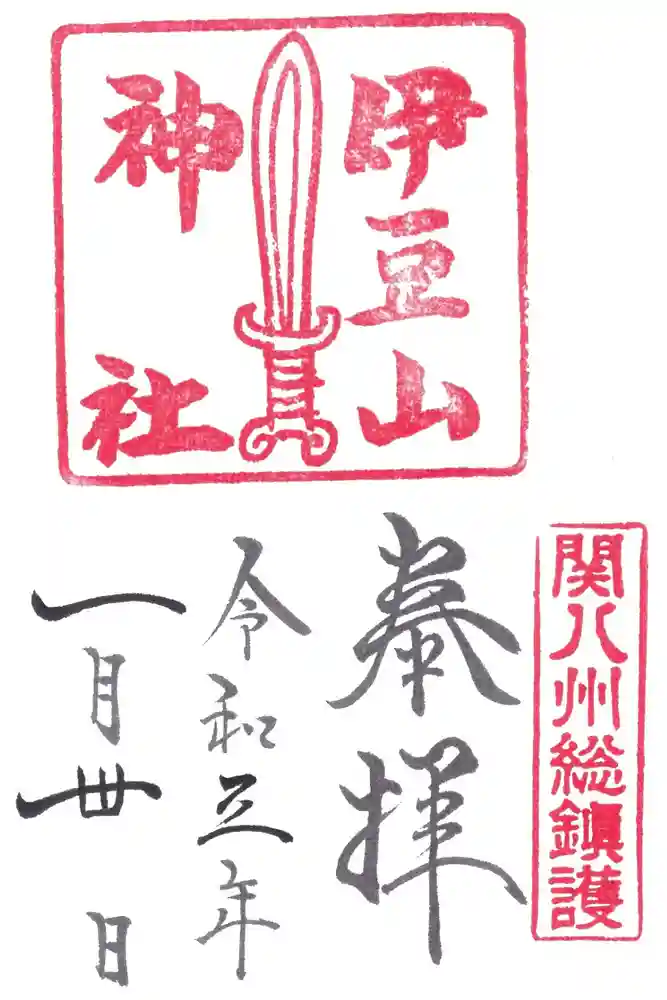 伊豆山
神社
関八州総鎮護
奉拝
令和三年
一月丗日